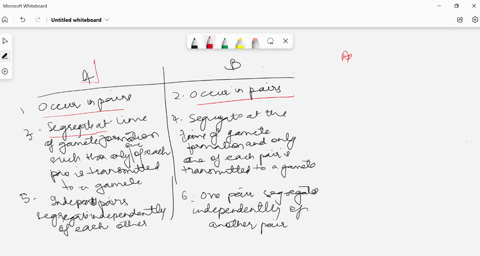 Microsoft Whiteboard
Untitled whiteboard
A
B
1. Occur in pairs
2. Occur in pairs
3. Segregat at time
of gamete formation
such that only one of each
pair is transmitted
to a gamete
7. Segregate at the
time of gamete
formation and only
one of each pair is
transmitted to a gamete
5. Independent pairs
segregate independently
of each other
6. One pair segregates
independently of
another pair